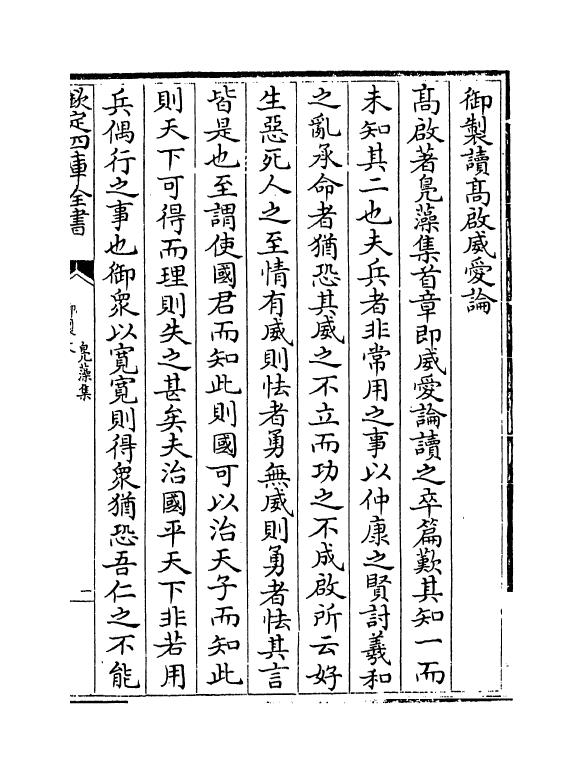 御製讀髙啟威愛論
髙啟著鳬藻集首章即威愛論讀之卒篇歎其知一而
未知其二也夫兵者非常用之事以仲康之賢討羲和
之亂承命者猶恐其威之不立而功之不成啟所云好
生惡死人之至情有威則怯者勇無威則勇者怯其言
皆是也至謂使國君而知此則國可以治天子而知此
則天下可得而理則失之甚矣夫治國平天下非若用
兵偶行之事也御衆以寛寛則得衆猶恐吾仁之不能
欽定四庫全書
鳬藻集
二